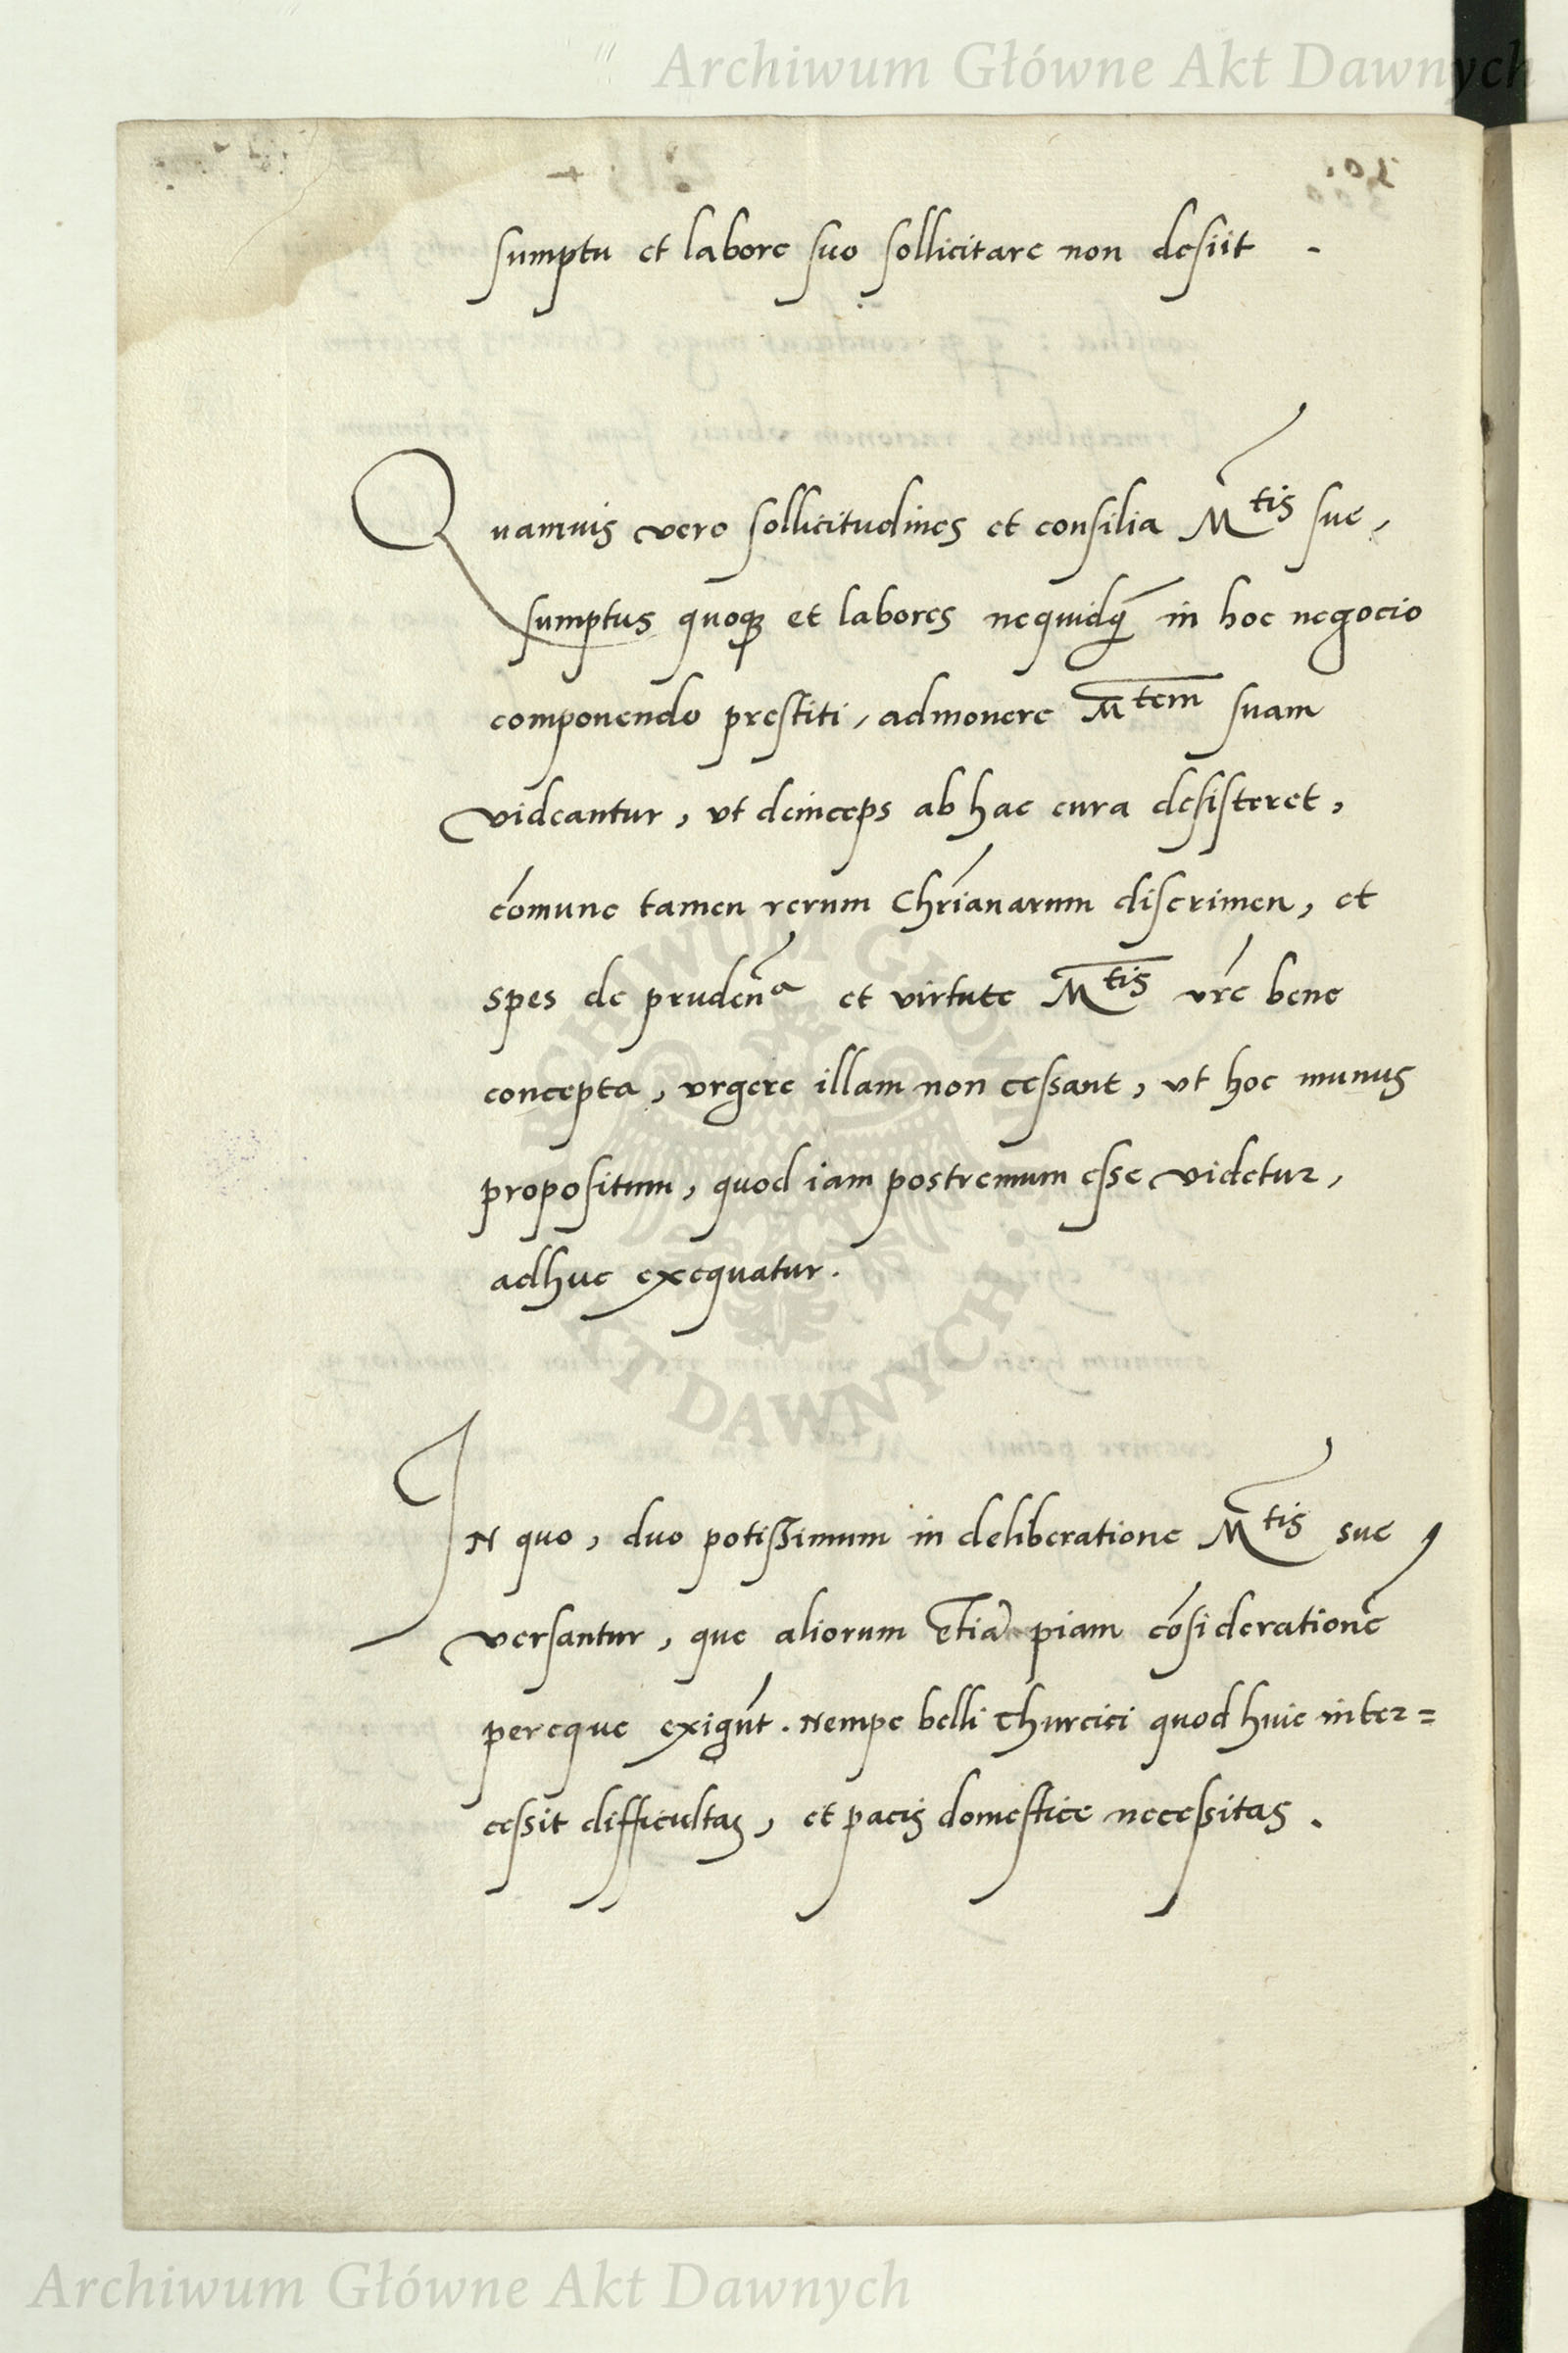 Archiwum Główne Akt Dawnych
sumptu et labore suo sollicitare non desiit .
Quamuis vero sollicitudines et consilia M^tis sue,
sumptus quoqꝫ et labores nequidq̃ in hoc negocio
componendo prestiti, admonere M^tem suam
videantur, vt deinceps ab hac cura desisteret,
cōmune tamen rerum Chrīanarum discrimen, et
spes de prudeñ^a et virtute M^tis vr̄e bene
concepta, vrgere illam non cessant, vt hoc munus
propositum, quod iam postremum esse videtur,
adhuc exequatur.
IN quo, duo potissimum in deliberatione M^tis sue,
versantur, que aliorum etiā piam cōsiderationē
pereque exigūt. Nempe belli Thurcici quod huic inter=
cessit difficultas, et pacis domestice necessitas.
ARCHIWUM GŁÓWNE AKT DAWNYCH
Archiwum Główne Akt Dawnych